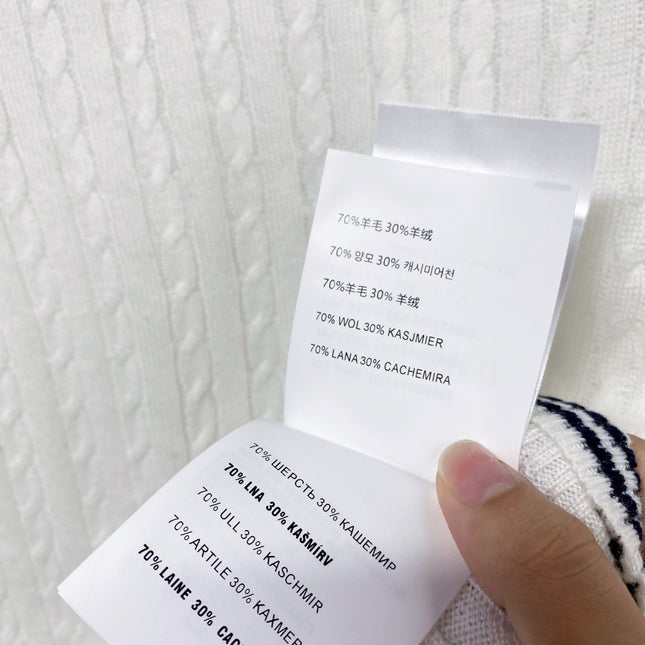 70%羊毛 30%羊绒
70% 양모 30% 캐시미어천
70%羊毛 30% 羊绒
70% WOL 30% KASJMIER
70% LANA 30% CACHEMIRA
70% ШЕРСТЬ 30% КАШЕМИР
70% LNA 30% KAŠMÍRV
70% ULL 30% KASCHMIR
70% ARTILE 30% KAXMER
70% LAINE 30%